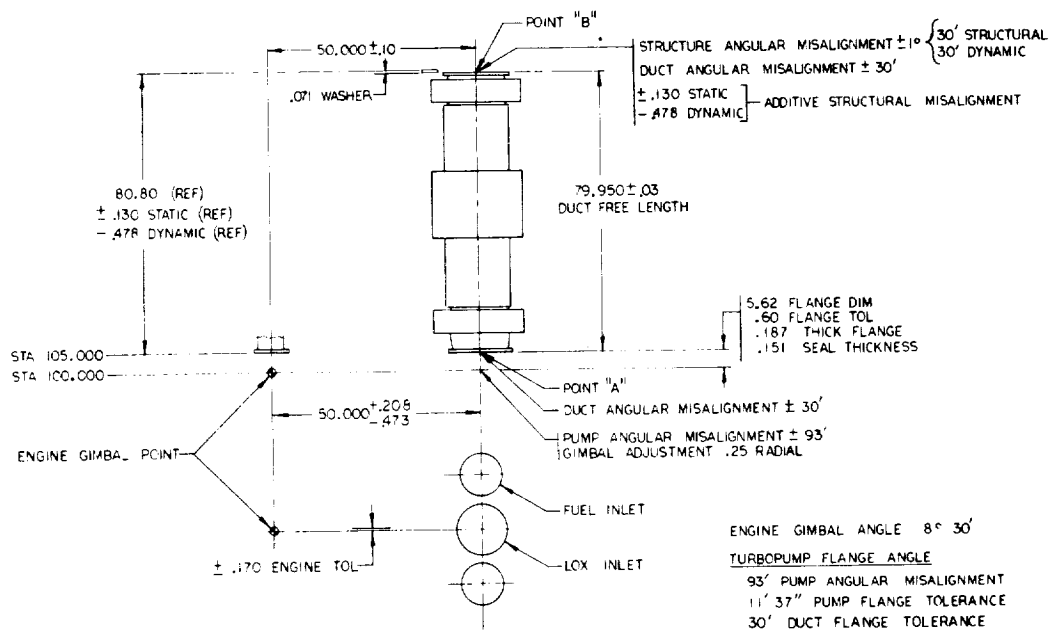 POINT "B"
50.000 ±.10
STRUCTURE ANGULAR MISALIGNMENT ±1° { 30' STRUCTURAL
30' DYNAMIC
DUCT ANGULAR MISALIGNMENT ± 30'
± .130 STATIC
- .478 DYNAMIC ] ADDITIVE STRUCTURAL MISALIGNMENT
.071 WASHER
80.80 (REF)
± .130 STATIC (REF)
- .478 DYNAMIC (REF)
79.950 ±.03
DUCT FREE LENGTH
5.62 FLANGE DIM
.60 FLANGE TOL
.187 THICK FLANGE
.151 SEAL THICKNESS
STA 105.000
STA 100.000
POINT "A"
50.000 +.208
-.473
DUCT ANGULAR MISALIGNMENT ± 30'
PUMP ANGULAR MISALIGNMENT ± 93'
GIMBAL ADJUSTMENT .25 RADIAL
ENGINE GIMBAL POINT
FUEL INLET
± .170 ENGINE TOL
LOX INLET
ENGINE GIMBAL ANGLE 8° 30'
TURBOPUMP FLANGE ANGLE
93' PUMP ANGULAR MISALIGNMENT
11' 37" PUMP FLANGE TOLERANCE
30' DUCT FLANGE TOLERANCE